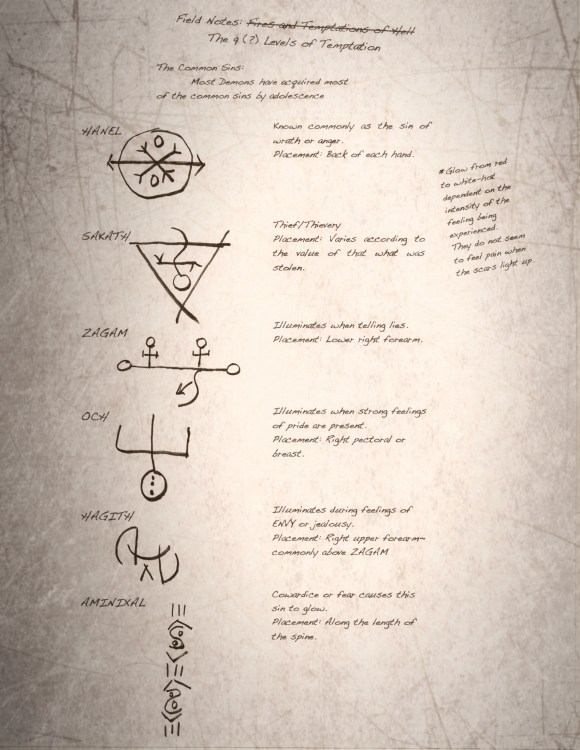 Field Notes: Fires and Temptations of Hell
The 9 (?) Levels of Temptation
The Common Sins:
Most Demons have acquired most
of the common sins by adolescence
HANEL
Known commonly as the sin of
wrath or anger.
Placement: Back of each hand.
* Glow from red
to white-hot
dependent on the
intensity of the
feeling being
experienced.
They do not seem
to feel pain when
the scars light up.
SAKATH
Thief/Thievery
Placement: Varies according to
the value of that what was
stolen.
ZAGAM
Illuminates when telling lies.
Placement: Lower right forearm.
OCH
Illuminates when strong feelings
of pride are present.
Placement: Right pectoral or
breast.
HAGITH
Illuminates during feelings of
ENVY or jealousy.
Placement: Right upper forearm~
commonly above ZAGAM
AMINIXAL
Cowardice or fear causes this
sin to glow.
Placement: Along the length of
the spine.